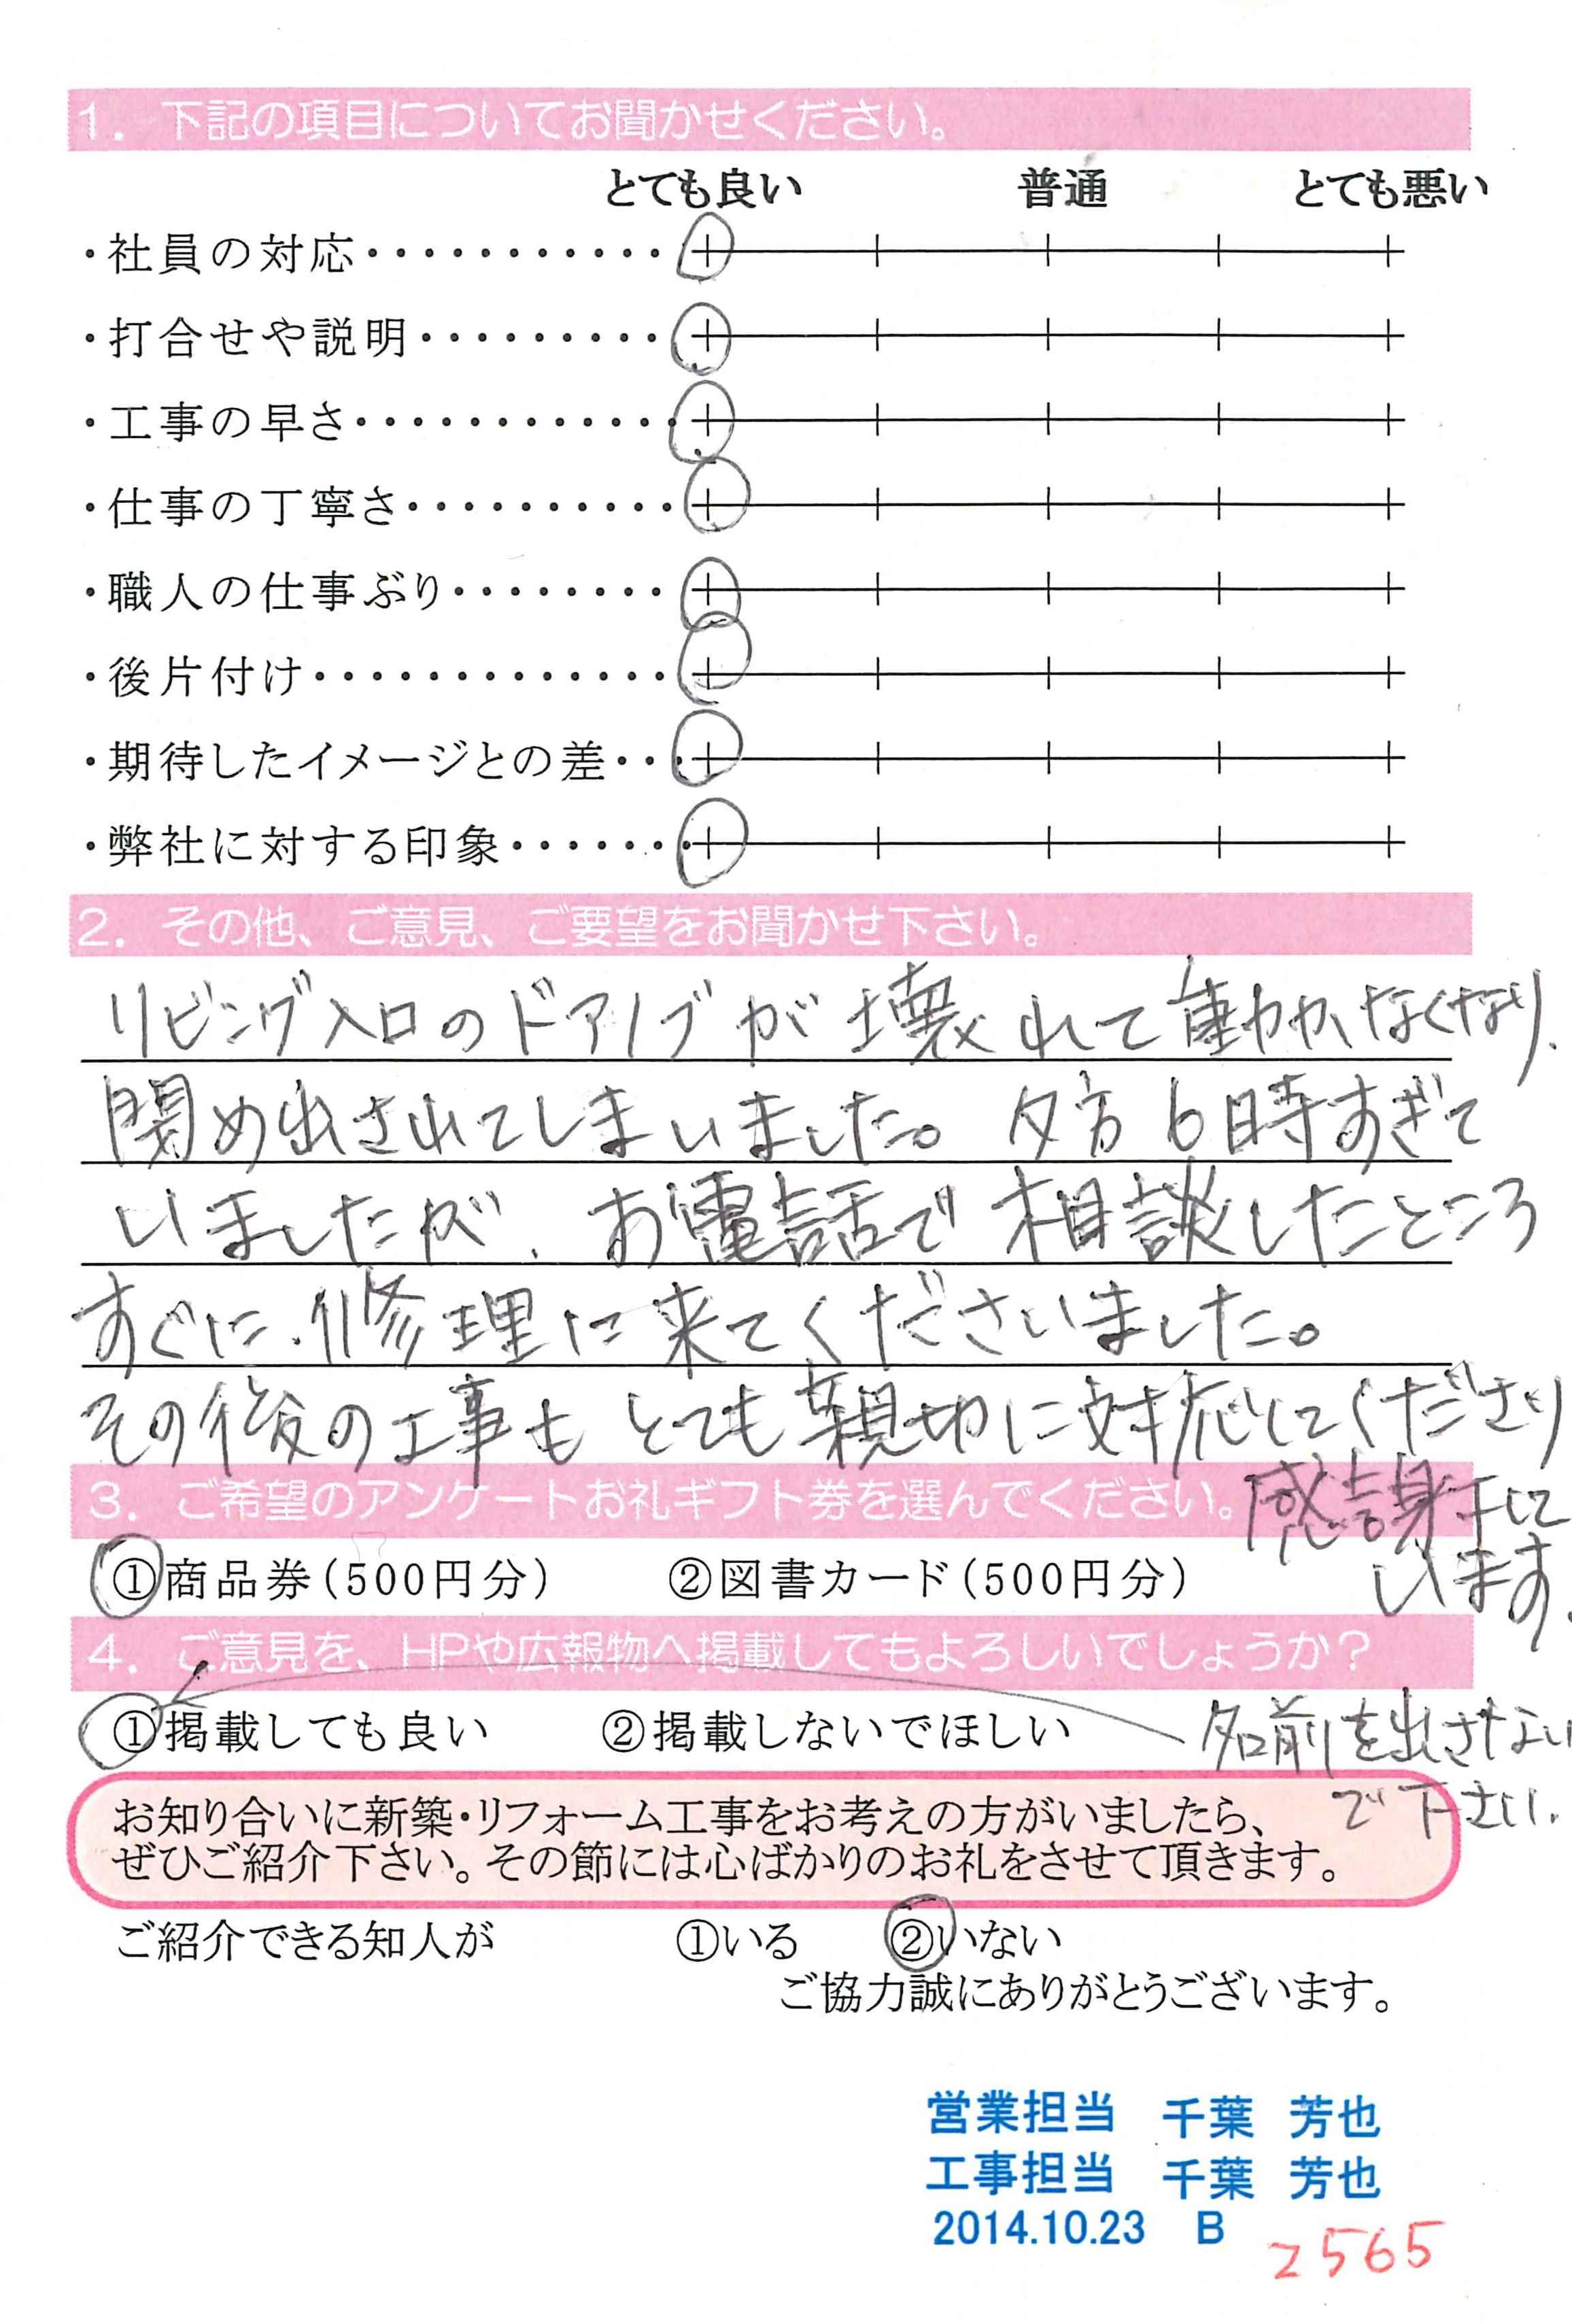 1. 下記の項目についてお聞かせください。
とても良い 普通 とても悪い
・社員の対応・・・・・・・・・・・
・打合せや説明・・・・・・・・・
・工事の早さ・・・・・・・・・・・・
・仕事の丁寧さ・・・・・・・・・・
・職人の仕事ぶり・・・・・・・・
・後片付け・・・・・・・・・・・・・
・期待したイメージとの差・・・
・弊社に対する印象・・・・・・・
2. その他、ご意見、ご要望をお聞かせ下さい。
リビング入口のドアノブが壊れて動かなくなり、
閉め出されてしまいました。夕方6時すぎて
いましたが、お電話で相談したところ
すぐに修理に来てくださいました。
その後の工事もとても親切に対応してくださり
感謝して
います。
3. ご希望のアンケートお礼ギフト券を選んでください。
①商品券(500円分) ②図書カード(500円分)
4. ご意見を、HPや広報物へ掲載してもよろしいでしょうか?
①掲載しても良い ②掲載しないでほしい
名前を出さない
で下さい。
お知り合いに新築・リフォーム工事をお考えの方がいましたら、
ぜひご紹介下さい。その節には心ばかりのお礼をさせて頂きます。
ご紹介できる知人が ①いる ②いない
ご協力誠にありがとうございます。
営業担当 千葉 芳也
工事担当 千葉 芳也
2014.10.23 B
2565